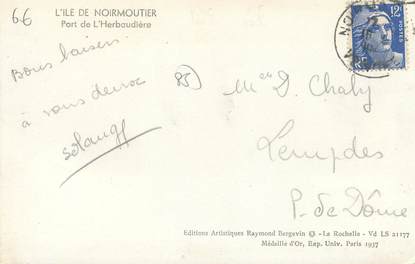 66
L'ILE DE NOIRMOUTIER
Port de L'Herbaudière
Bons baisers
à vous deux
Solange
85)
D. Chaly
Lempdes
P. de Dôme
12F
POSTES
RF
Editions Artistiques Raymond Bergevin © - La Rochelle - Vd LS 21177
Médaille d'Or, Exp. Univ. Paris 1937